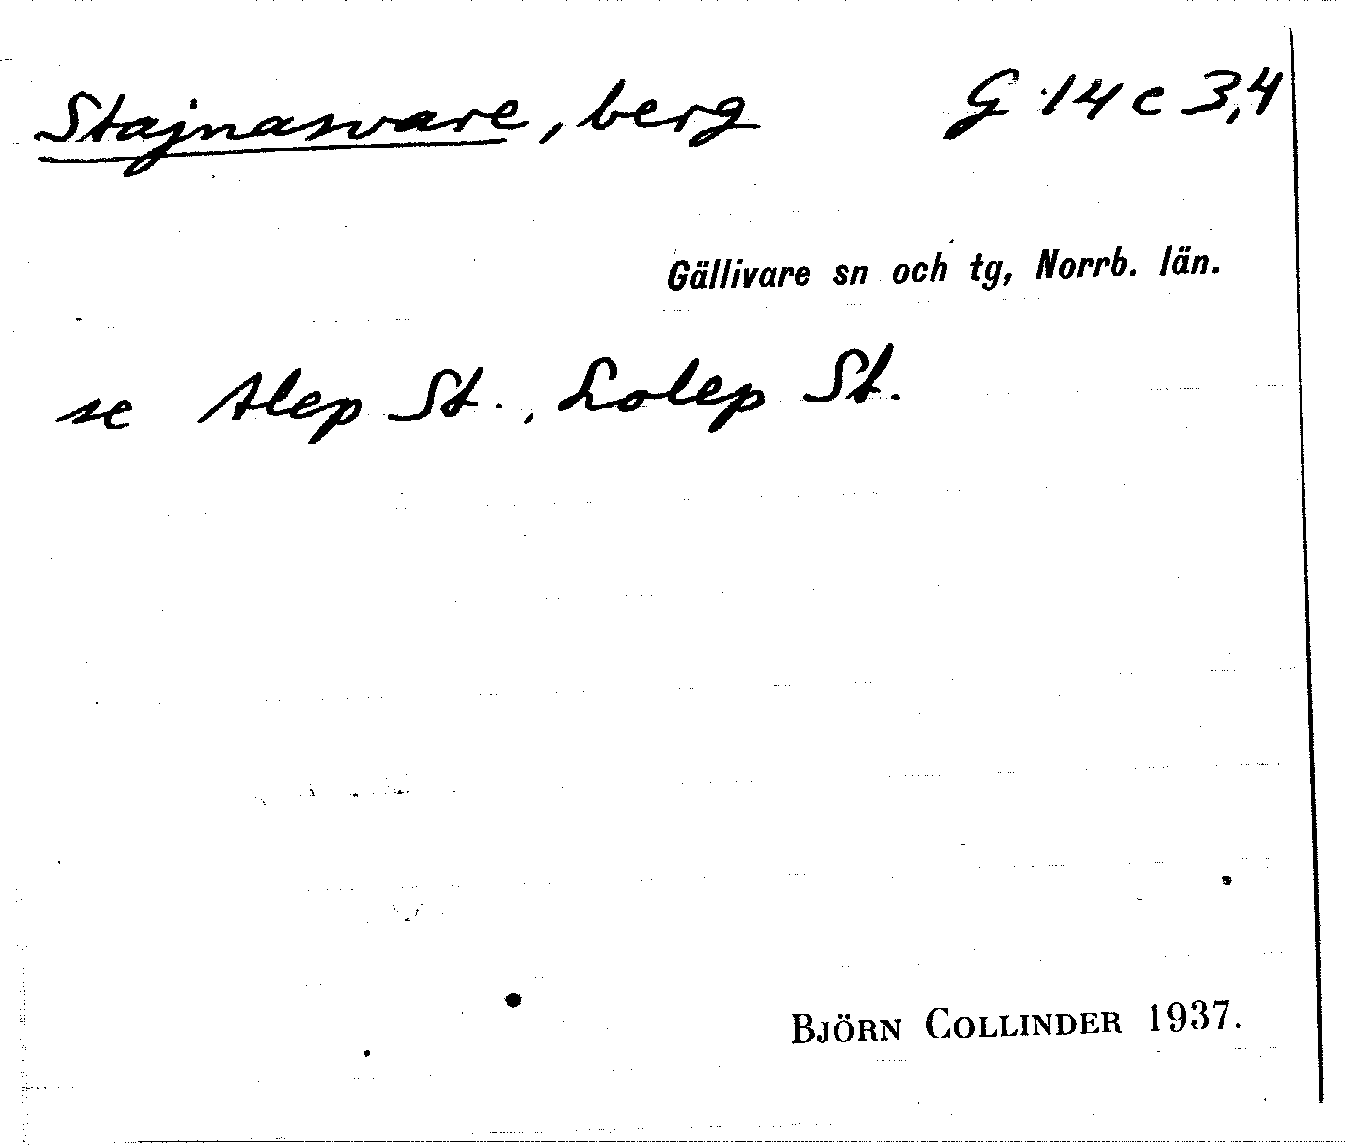 Stajnasvare, berg G 14 c 3,4
Gällivare sn och tg, Norrb. län.
se Alep St., Lolep St.
BJÖRN COLLINDER 1937.